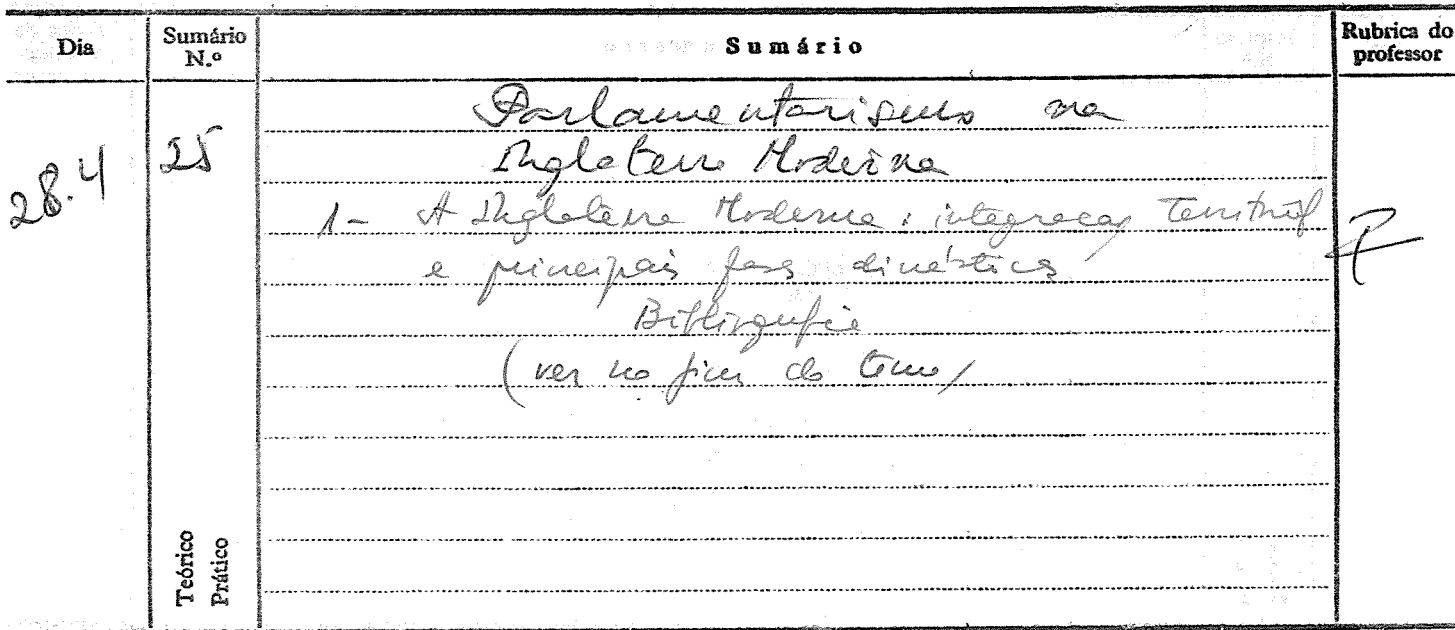 Dia
Sumário
N.º
Sumário
Rubrica do
professor
28.4
25
Parlamentarismo na
Inglaterra Moderna
1- A Inglaterra Moderna: integração Territorial
e principais fases dinásticas
Bibliografia
(ver no fim do tema)
Teórico
Prático